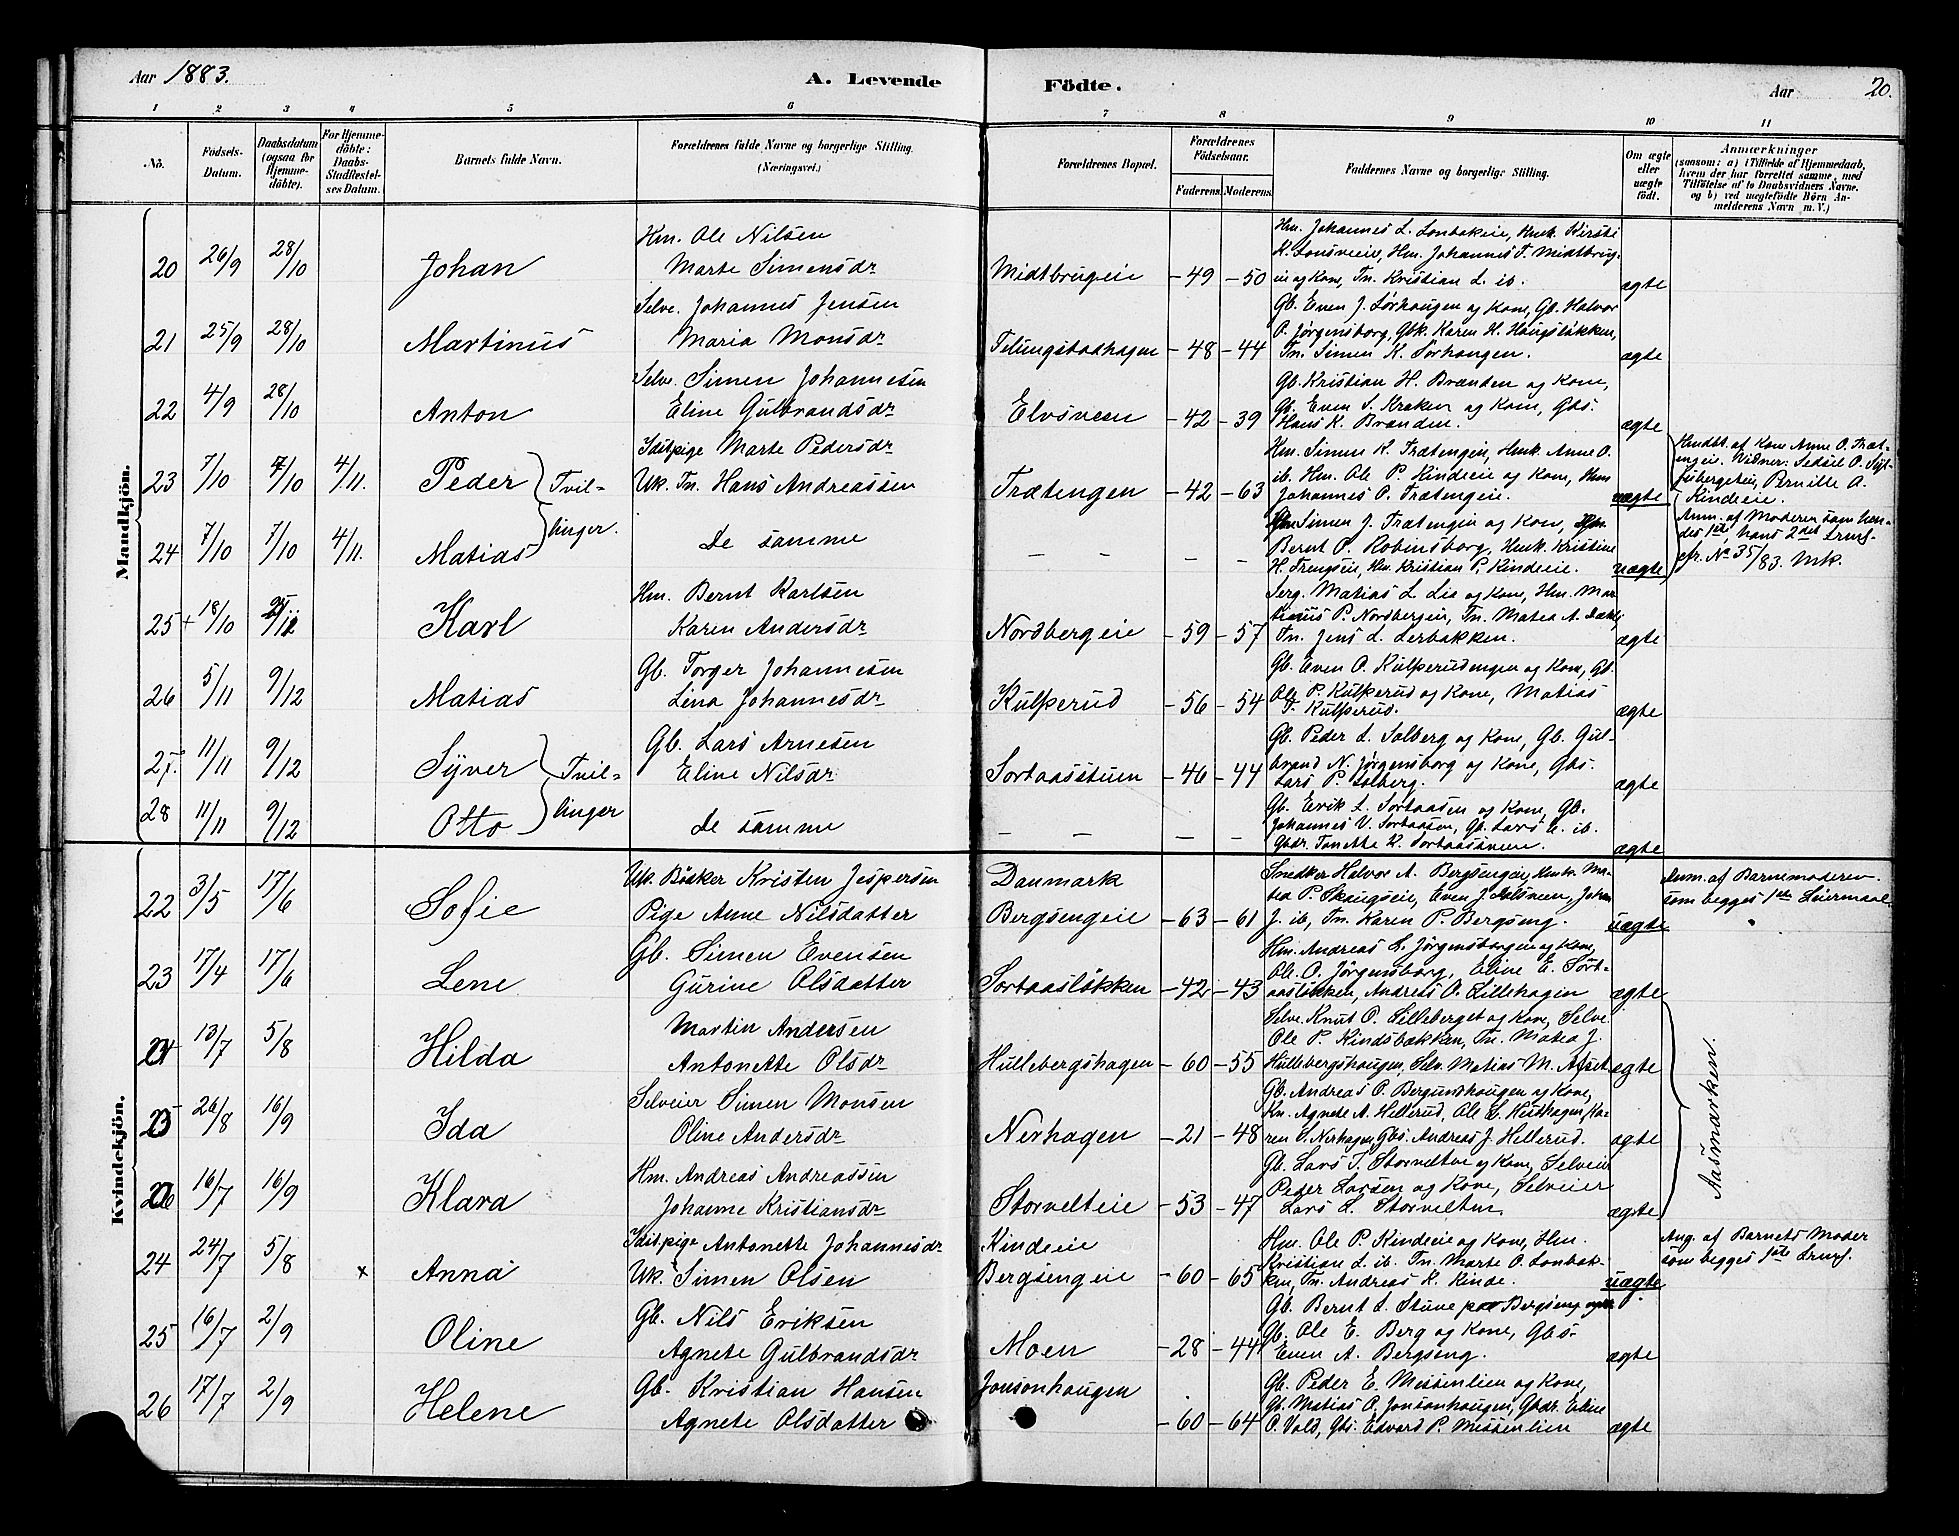 Aar 1883.
A. Levende
Födte.
Aar
20.
1 2 3 4 5 6 7 8 9 10 11
No.
Födsels-
Datum.
Daabsdatum
(ogsaa för
Hjemme-
döbte).
For Hjemme-
döbte:
Daabs-
Stadfæstel-
ses Datum.
Barnets fulde Navn.
Forældrenes fulde Navne og borgerlige Stilling.
(Næringsvei.)
Forældrenes Bopæl.
Forældrenes
Födselsaar.
Faderens. Moderens.
Faddernes Navne og borgerlige Stilling.
Om ægte
eller
uægte
födt.
Anmærkninger
(saasom: a) i Tilfælde af Hjemmedaab,
hvem der har forrettet samme, med
Tilföielse af to Daabsvidners Navne,
og b) ved uægtefödte Börn An-
melderens Navn m. V.)
Mandkjön.
20 26/9 28/10 Johan
Hm. Ole Nilsen
Marte Simensdr
Midtbrugeie - 49 - 50
Hm. Johannes L. Lonbakeie, Hmk. Kirsti
K. Lonsveeie, Hm. Johannes T. Midtbrug-
eie og Kone, Tn. Kristian L. ib.
ægte
21 25/9 28/10 Martinus
Selve. Johannes Jensen
Maria Monsdr
Telungstadhagen - 48 - 44
Gb. Even J. Sørhaugen og Kone, Gb. Halvor
P. Jørgensborg, Gbk. Karen H. Haugsløkken,
Tn. Simen K. Sørhaugen.
ægte
22 4/9 28/10 Anton
Selve. Simen Johannesen
Eline Gulbrandsdr
Elvsveen - 42 - 39
Gb. Kristian H. Brænden og Kone,
Gb. Even S. Kraken og Kone, Gbs.
Hans K. Brænden.
ægte
23 7/10 7/10 4/11. Peder
Tvil-
linger.
Idstpige Marte Pedersdr
Uk. Tn. Hans Andreassen
Trætengen - 42 - 63
Hm. Simen K. Trætengen, Hmk. Anne O.
ib. Hm. Ole P. Kindeeie og Kone, Hm
Johannes O. Trætengeie.
uægte
Hmdbt. af Kone Anne O. Træt-
engeie. Vidner: Sedsel O. 
Pernille A.
Kindeeie.
24 7/10 7/10 4/11. Matias
De samme
- - - -
Simen J. Trætengen og Kone, Hm.
Bernt O. Robinsborg, Hmk. Kristine
H. Trengseie, Hm. Kristian P. Kindeeie.
uægte
Anm. af Moderen som hen-
des 1ste, hans 2det Lmf.
cfr. No 35/83. Mk.
25 + 18/10 Karl
Hm. Bernt Karlsen
Karen Andersdr
Nordbergeie - 59 - 57
Serg. Matias L. Lie og Kone, Hm. Mar-
tinius P. Nordbergeie, Tn. Matea A.
Tn. Jens L. Lerbakken.
ægte
26 5/11 9/12 Matias
Gb. Torger Johannesen
Lina Johannesdr.
Kulperud - 56 - 54
Gb. Even O. Kulperudengen og Kone, Gb.
Ole P. Kulperud og Kone, Matias
T. Kulperud.
ægte
27. 11/11 9/12 Syver
Tvil-
linger
Gb. Lars Arnesen
Eline Nilsdr.
Sortaasstuen - 46 - 44
Gb. Peder L. Solberg og Kone, Gb. Gul-
brand N. Jørgensborg og Kone, Gbs.
Lars P. Solberg.
ægte
28 11/11 9/12 Otto
De samme
- - - -
Gb. Erik L. Sortaasen og Kone, Gb.
Johannes V. Sortaasen, Gb. Lars E. ib.
Gbdr. Tonette K. Sortaasveen.
ægte
Kvindekjön.
22 3/5 17/6 Sofie
Uk. Bødker Kristen Jespersen
Pige Anne Nilsdatter
Danmark
Bergsengeie - 63 - 61
Snedker Halvor A. Bergsengeie, Hmk. Ma-
tea P. Skaugseie, Even J. Johan
J. ib, Tn. Karen P. Bergseng.
uægte
Anm. af Barnemoderen
som begges 1ste Leiermaal
23 17/4 17/6 Lene
Gb. Simen Evensen
Gurine Olsdatter
Sortaasløkken - 42 - 43
Hm. Andreas L. Jørgensborgeie og Kone,
Ole O. Jørgensborg, Eline E. Sort-
aasløkken, Andreas O. Lillehagen
ægte
24 13/7 5/8 Hilda
Martin Andersen
Antonette Olsdr
Hullebergshagen - 60 - 55
Selve. Knut O. Lilleberget og Kone, Selve.
Ole P. Kindsbækken, Tn. Matea J.
Hullebergshaugen, Selv. Matias M. Afset
ægte
25 26/8 16/9 Ida
Selveier Simen Monsen
Oline Andersdr
Nerhagen - 21 - 48
Gb. Andreas O. Bergundhaugen og Kone,
Kn. Agnete A. Hellerud, Ole S. Ka-
ren S. Nerhagen, Gbs. Andreas J. Hellerud.
ægte
26 16/7 16/9 Klara
Hm. Andreas Andreassen
Johanne Kristiansdr
Storvelteie - 53 - 47
Gb. Lars T. Storvelten og Kone, Selveier
Peder Larsen og Kone, Selveier
Lars L. Storvelten.
ægte
Aasmarken.
24 24/7 5/8 x Anna
Idstpige Antonette Johannesdr
Uk. Simen Olsen
Kindeeie
Bergsengeie - 60 - 65
Hm. Ole P. Kindeeie og Kone, Hm.
Kristian L. ib. Tn. Marte O. Lonbak-
ken, Tn. Andreas K. Kinde.
uægte
Ang. af Barnets Moder
som begges 1ste Lmf.
25 16/7 2/9 Oline
Gb. Nils Eriksen
Agnete Gulbrandsdr
Moen - 28 - 44
Gb. Bernt L. Stuve Bergseng
Gb. Ole E. Berg og Kone, Gbs.
Even A. Bergseng.
ægte
26 17/7 2/9 Helene
Gb. Kristian Hansen
Agnete Olsdatter
Jonsonhaugen
- 60 - 64
Gb. Peder E. Messenlien og Kone,
Gb. Matias O. Jonsonhaugen, Gbdr. Eline
O. Vold, Gbs. Edvard P. Messenlien
ægte